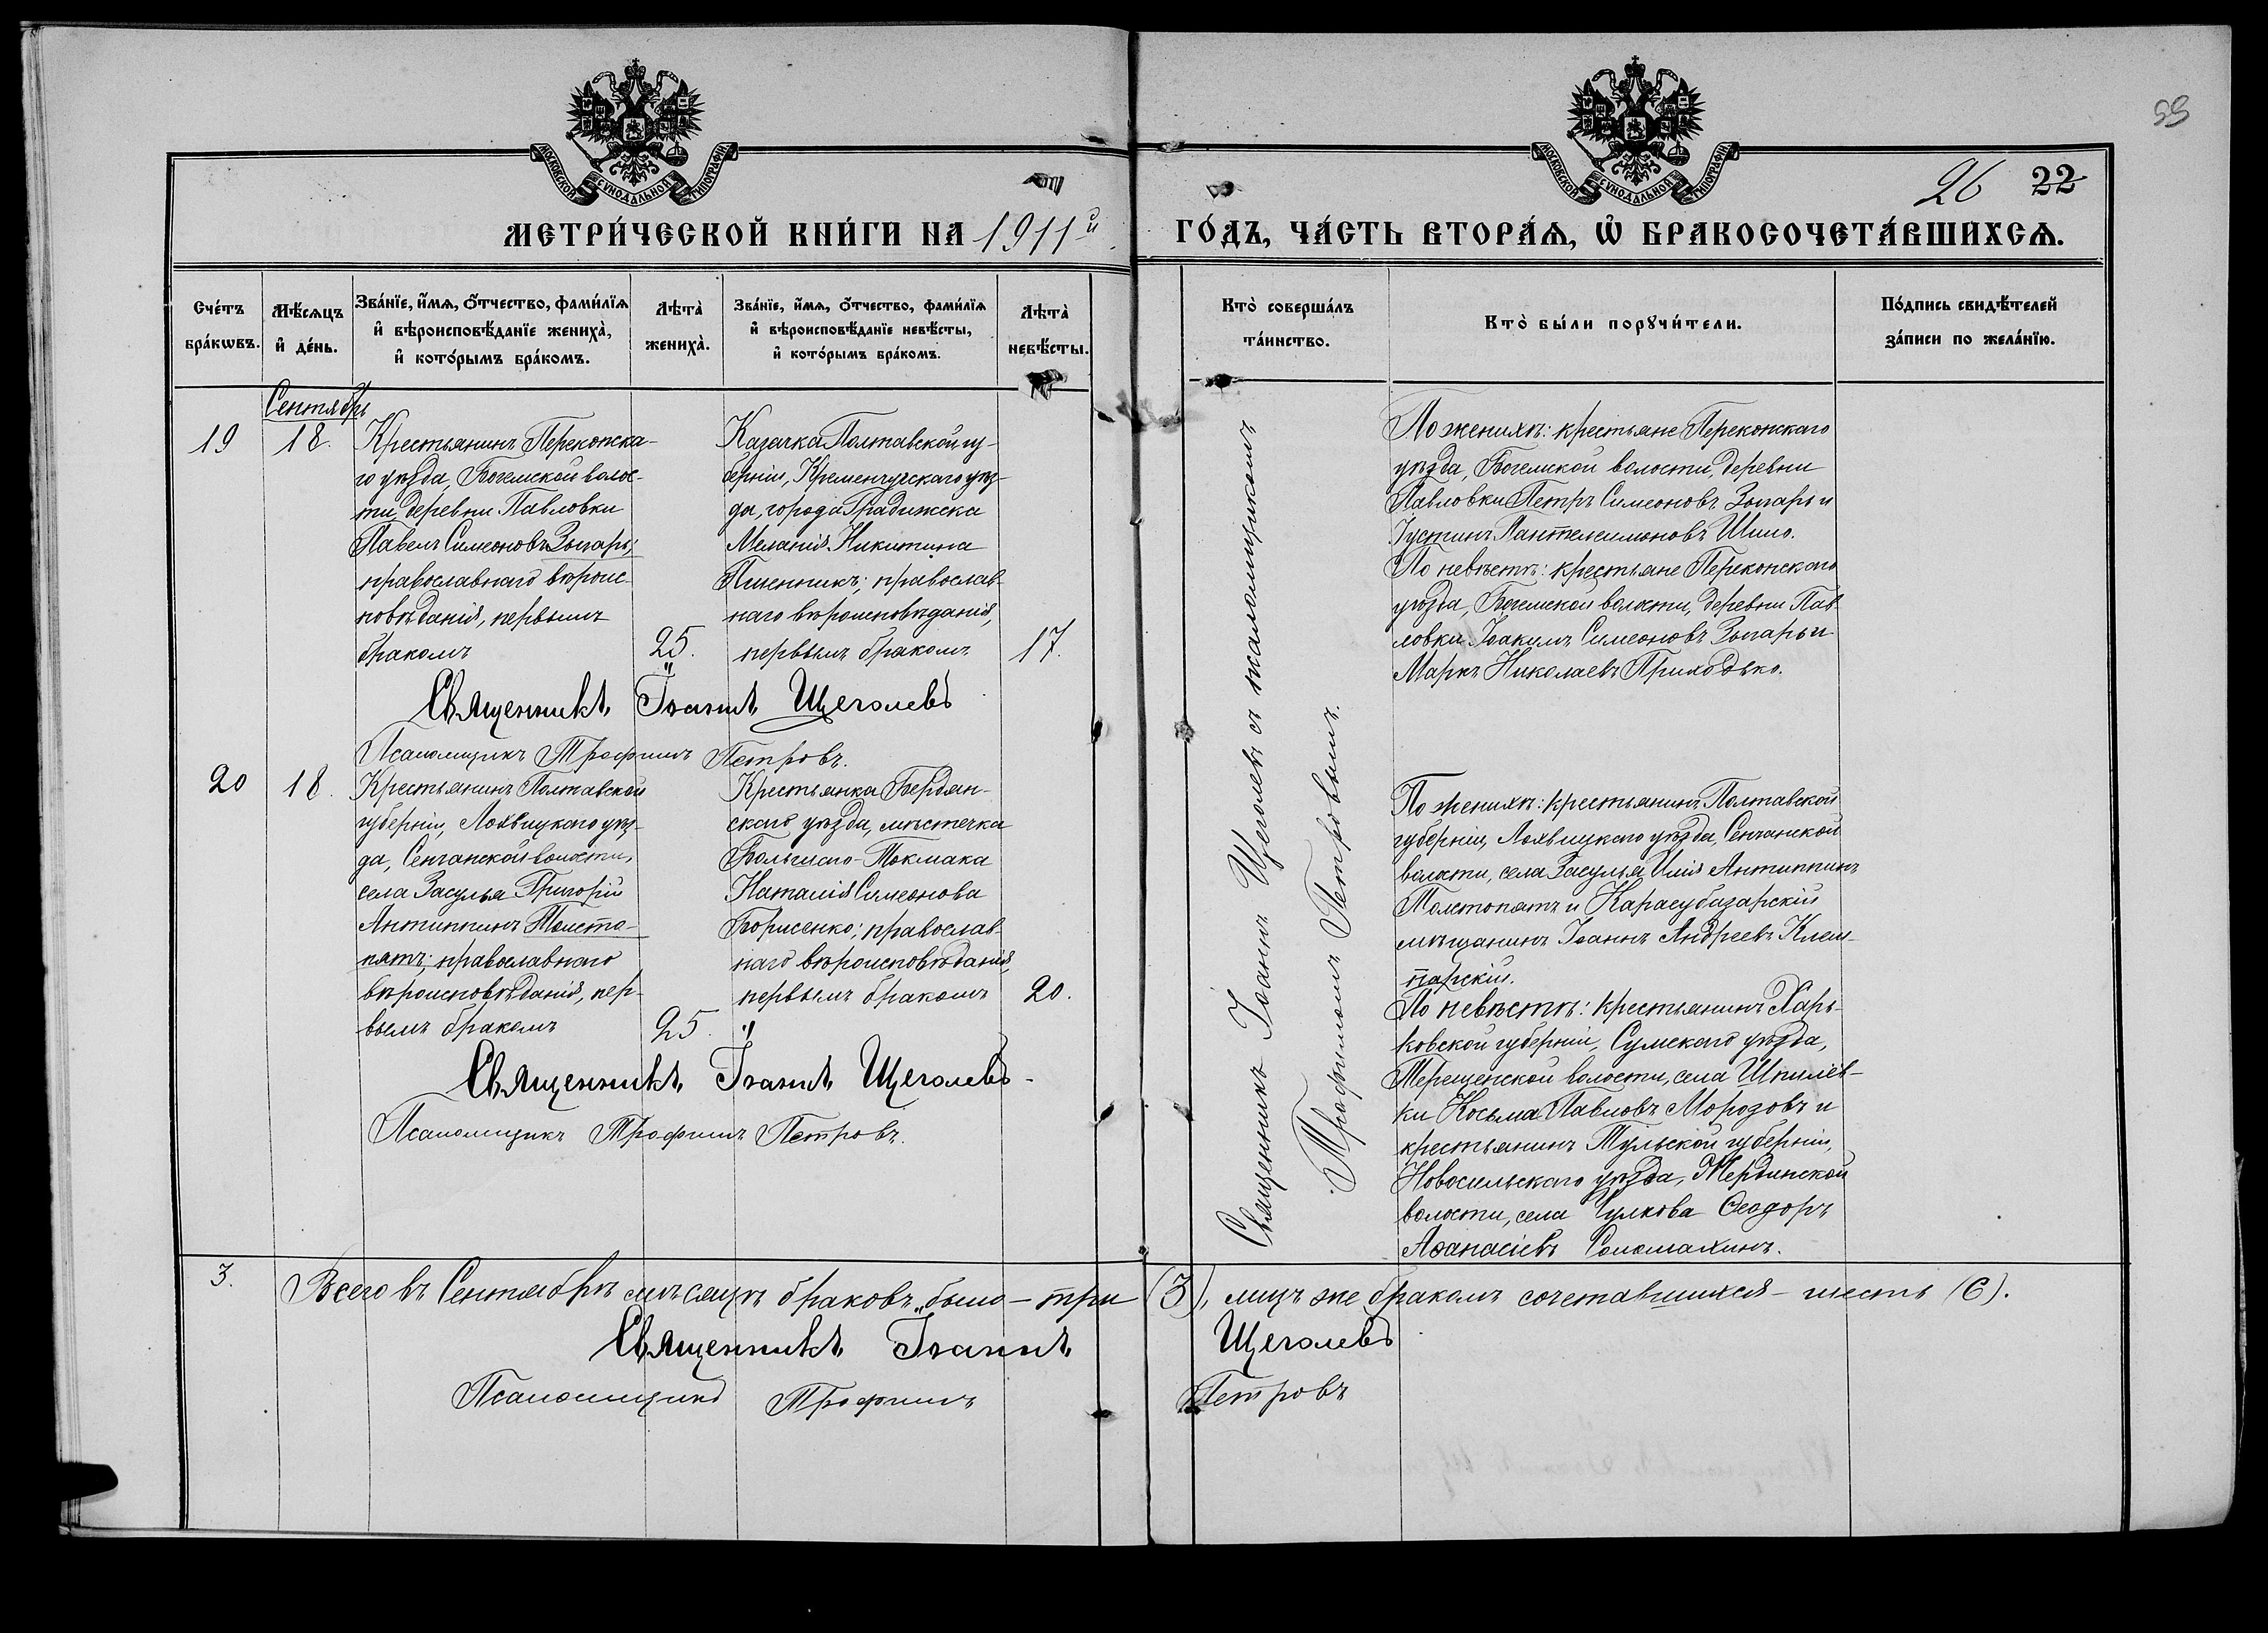 33
МОСКОВСКОЙ СѴНОДАЛЬНОЙ ТИПОГРАФІИ
МОСКОВСКОЙ СѴНОДАЛЬНОЙ ТИПОГРАФІИ
26 22
МЕТРИ́ЧЕСКОЙ КНИ́ГИ НА 1911й ГО́ДЪ, ЧА́СТЬ ВТОРА́Ѧ, Ѡ҆ БРАКОСОЧЕТА́ВШИХСѦ.
Сче́тъ бра́кѡвъ.
Мѣ́сѧцъ и҆ де́нь.
Зва́нїе, и҆́мѧ, ѻ҆́тчество, фами́лїѧ
и҆ вѣроисповѣ́данїе жениха̀,
и҆ кото́рымъ бра́комъ.
Лѣ́та̀
жениха̀.
Зва́нїе, и҆́мѧ, ѻ҆́тчество, фами́лїѧ
и҆ вѣроисповѣ́данїе невѣ́сты,
и҆ кото́рымъ бра́комъ.
Лѣ́та̀
невѣ́сты.
Кто̀ соверша́лъ
та́инство.
Кто̀ бы́ли порꙋчи́тели.
По́дпись свидѣ́телей
за́писи по жела́нїю.
Сентябрь
19
18.
Крестьянинъ Перекопска-
го уѣзда, Богемской волос-
ти, деревни Павловки
Павелъ Симеоновъ Зыгарь;
православнаго вѣроис-
повѣданія, первымъ
бракомъ
25.
Казачка Полтавской гу-
берніи, Кременчугскаго уѣз-
да, города Градижска
Меланія Никитина
Пшенникъ; православ-
наго вѣроисповѣданія,
первымъ бракомъ
17.
Священникъ Іоаннъ Щеголевъ
Псаломщикъ Трофимъ Петровъ.
Священникъ Іоаннъ Щеголевъ съ псаломщикомъ
Трофимомъ Петровымъ.
По женихѣ: крестьяне Перекопскаго
уѣзда, Богемской волости, деревни
Павловки Петръ Симеоновъ Зыгарь и
Іустинъ Пантелеимоновъ Шило.
По невѣстѣ: крестьяне Перекопскаго
уѣзда, Богемской волости, деревни Пав-
ловки Іоакимъ Симеоновъ Зыгарь и
Маркъ Николаевъ Приходько.
20
18.
Крестьянинъ Полтавской
губерніи, Лохвицкаго уѣз-
да, Сенчанской волости,
села Засулья Григорій
Антиппинъ Толсто-
пятъ; православнаго
вѣроисповѣданія, пер-
вымъ бракомъ
25.
Крестьянка Бердян-
скаго уѣзда, мѣстечка
Большого-Токмака
Наталія Симеонова
Борисенко; православ-
наго вѣроисповѣданія,
первымъ бракомъ
20.
Священникъ Іоаннъ Щеголевъ
Псаломщикъ Трофимъ Петровъ.
По женихѣ: крестьянинъ Полтавской
губерніи, Лохвицкаго уѣзда, Сенчанской
волости, села Засулья Илія Антиппинъ
Толстопятъ и Карасубазарскій
мѣщанинъ Іоаннъ Андреевъ Клем-
парскій.
По невѣстѣ: крестьянинъ Харь-
ковской губерніи, Сумскаго уѣзда,
Терещенской волости, села Шпилев-
ки Косьма Павловъ Морозовъ и
крестьянинъ Тульской губерніи,
Новосильскаго уѣзда, Жердинской
волости, села Чулкова Ѳеодоръ
Аѳанасіевъ Соломахинъ.
3.
Всего въ Сентябрѣ мѣсяцѣ браковъ было - три (3), лицъ же бракомъ сочетавшихся - шесть (6).
Священникъ Іоаннъ Щеголевъ
Псаломщикъ Трофимъ Петровъ